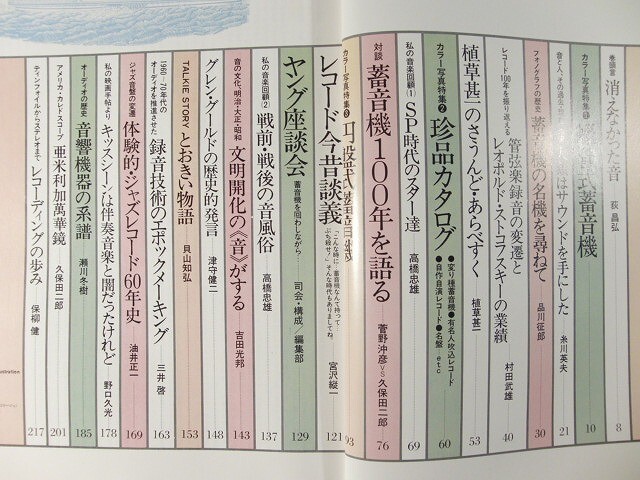 巻頭言
消えなかった音
荻 昌弘
8
カラー写真特集❶
式蓄音機
10
音と人、その過去から
はサウンドを手にした
糸川英夫
21
フォノグラフの歴史
蓄音機の名機を尋ねて
品川征郎
30
レコード100年を振り返える
管弦楽録音の変遷と
レオポルド・ストコフスキーの業績
村田武雄
40
植草甚一のさうんど・あらべすく
植草甚一
53
カラー写真特集❷
珍品カタログ
●変り種蓄音機●有名人吹込レコード
●自作自演レコード●名盤…etc
60
私の音楽回顧(1)
SP時代のスター達
高橋忠雄
69
対談
蓄音機100年を語る
菅野沖彦VS久保田二郎
76
カラー写真特集❸
93
レコード今昔談義
「こんな時に…蓄音機なんて持って…
ぶち殺せ!」そんな時代もありましてね
宮沢縦一
121
ヤング座談会
蓄音機を囲わしながら…
司会・構成/編集部
129
私の音楽回顧(2)
戦前・戦後の音風俗
高橋忠雄
137
音の文化、明治・大正・昭和
文明開化の《音》がする
吉田光邦
143
グレン・グールドの歴史的発言
津守健二
148
TALKIE STORY
とおきい物語
貝山知弘
153
1960〜70年代の
オーディオを推進させた
録音技術のエポックメーキング
三井 啓
163
ジャズ音盤の変遷
体験的・ジャズレコード60年史
油井正一
169
私の映画手帖より
キッスシーンは伴奏音楽と闇だったけれど
野口久光
178
オーディオの歴史
音響機器の系譜
瀬川冬樹
185
アメリカ・カレドスコープ
亜米利加萬華鏡
久保田二郎
201
ティンフォイルからステレオまで
レコーディングの歩み
保柳 健
217